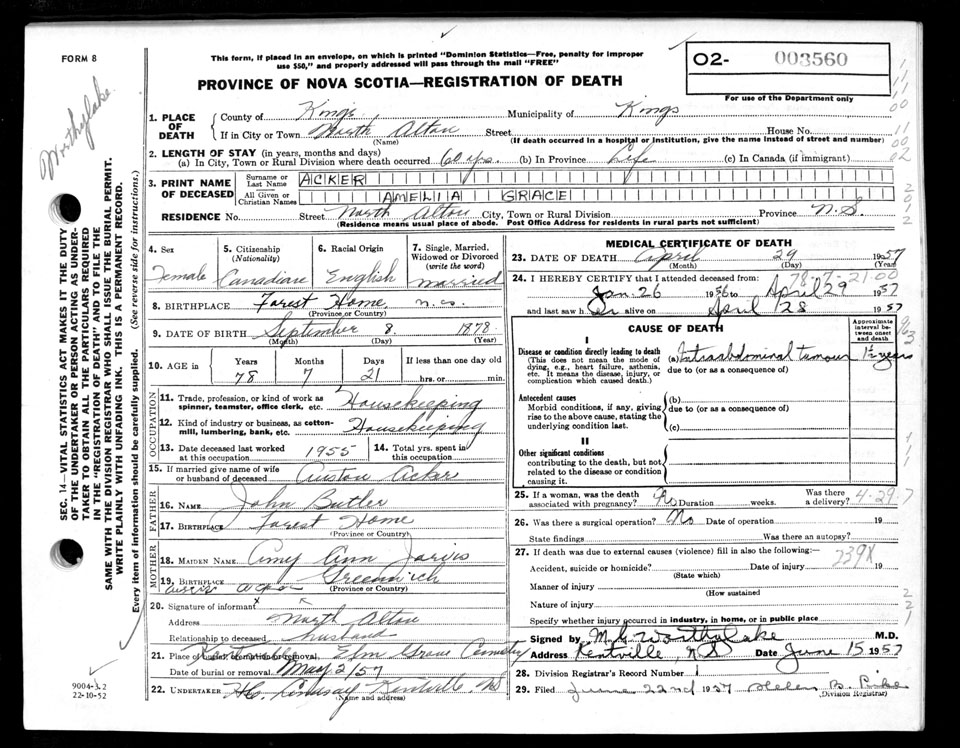 FORM 8
This form, if placed in an envelope, on which is printed "Dominion Statistics—Free, penalty for improper
use $50," and properly addressed will pass through the mail "FREE"
O2- 003560
PROVINCE OF NOVA SCOTIA—REGISTRATION OF DEATH
For use of the Department only
Worthylake
1. PLACE OF DEATH
County of Kings Municipality of Kings
If in City or Town North Alton Street House No.
(Name) (If death occurred in a hospital or institution, give the name instead of street and number)
2. LENGTH OF STAY (in years, months and days)
(a) In City, Town or Rural Division where death occurred 60 yrs. (b) In Province Life (c) In Canada (if immigrant)
3. PRINT NAME OF DECEASED
Surname or Last Name ACKER
All Given or Christian Names AMELIA GRACE
RESIDENCE No. Street North Alton City, Town or Rural Division Province N.S.
(Residence means usual place of abode. Post Office Address for residents in rural parts not sufficient)
4. Sex Female
5. Citizenship (Nationality) Canadian
6. Racial Origin English
7. Single, Married, Widowed or Divorced (write the word) married
8. BIRTHPLACE Forest Home
(Province or Country)
9. DATE OF BIRTH September 8. 1878
(Month) (Day) (Year)
10. AGE in Years Months Days If less than one day old
78 7 21 hrs. or min.
OCCUPATION
11. Trade, profession, or kind of work as spinner, teamster, office clerk, etc. Housekeeping
12. Kind of industry or business, as cotton-mill, lumbering, bank, etc. Housekeeping
13. Date deceased last worked at this occupation 1955
14. Total yrs. spent in this occupation
15. If married give name of wife or husband of deceased Acker
FATHER
16. NAME John Butler
17. BIRTHPLACE Forest Home
(Province or Country)
MOTHER
18. MAIDEN NAME Amy Ann Jarvis
19. BIRTHPLACE Greenwich
(Province or Country)
20. Signature of informant
Address North Alton
Relationship to deceased husband
21. Place of burial, cremation or removal Kentville Elm Grove Cemetery
Date of burial or removal May 2/57
22. UNDERTAKER Lindsay Kentville NS
(Name and address)
MEDICAL CERTIFICATE OF DEATH
23. DATE OF DEATH April 29 1957
(Month) (Day) (Year)
24. I HEREBY CERTIFY that I attended deceased from: 78-7-21.00
Jan 26 1956 to April 29 1957
and last saw h er alive on April 28 1957
CAUSE OF DEATH
Approximate interval between onset and death
I
Disease or condition directly leading to death
(This does not mean the mode of dying, e.g., heart failure, asthenia, etc. It means the disease, injury, or complication which caused death.)
(a) Intraabdominal tumour 1½ years
due to (or as a consequence of)
Antecedent causes
Morbid conditions, if any, giving rise to the above cause, stating the underlying condition last.
(b)
due to (or as a consequence of)
(c)
II
Other significant conditions
contributing to the death, but not related to the disease or condition causing it.
25. If a woman, was the death associated with pregnancy? No Duration weeks. Was there a delivery? 4-29-7
26. Was there a surgical operation? No Date of operation 19
State findings Was there an autopsy?
27. If death was due to external causes (violence) fill in also the following:—
239X
Accident, suicide or homicide? Date of injury 19
(State which)
Manner of injury
(How sustained
Nature of injury
Specify whether injury occurred in industry, in home, or in public place
Signed by M. G. Worthylake M.D.
Address Kentville, NS Date June 15 1957
28. Division Registrar's Record Number
29. Filed June 22nd 1957 Helen B. Pike
(Division Registrar)
SEC. 14—VITAL STATISTICS ACT MAKES IT THE DUTY
OF THE UNDERTAKER OR PERSON ACTING AS UNDERTAKER TO OBTAIN ALL THE PARTICULARS REQUIRED
IN THE "REGISTRATION OF DEATH" AND TO FILE THE
SAME WITH THE DIVISION REGISTRAR WHO SHALL ISSUE THE BURIAL PERMIT.
WRITE PLAINLY WITH UNFADING INK. THIS IS A PERMANENT RECORD.
Every item of information should be carefully supplied. (See reverse side for instructions.)
9004-3.2
22-10-52